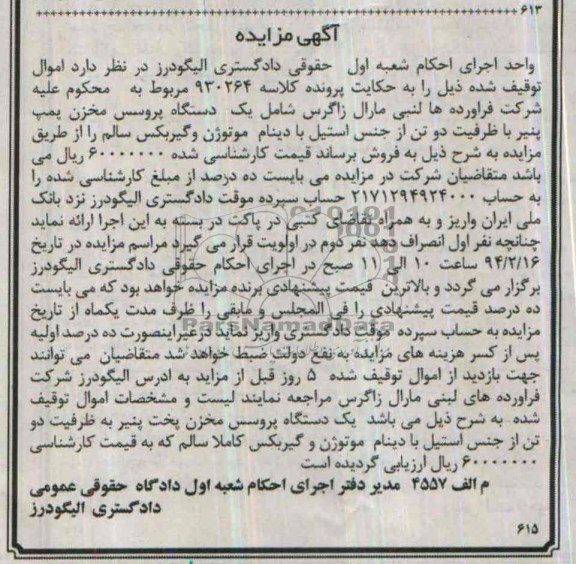 ۶۱۳
آگهی مزایده
واحد اجرای احکام شعبه اول حقوقی دادگستری الیگودرز در نظر دارد اموال
توقیف شده ذیل را به حکایت پرونده کلاسه ۹۳۰۲۶۴ مربوط به محکوم علیه
شرکت فراورده ها لنبی مارال زاگرس شامل یک دستگاه پروسس مخزن پمپ
پنیر با ظرفیت دو تن از جنس استیل با دینام موتوژن وگیربکس سالم را از طریق
مزایده به شرح ذیل به فروش برساند قیمت کارشناسی شده ۶۰۰۰۰۰۰۰ ریال می
باشد متقاضیان شرکت در مزایده می بایست ده درصد از مبلغ کارشناسی شده را
به حساب ۲۱۷۱۲۹۴۹۲۴۰۰۰ حساب سپرده موقت دادگستری الیگودرز نزد بانک
ملی ایران واریز و به همراه تقاضای کتبی در پاکت در بسته به این اجرا ارائه نماید
چنانچه نفر اول انصراف دهد نفر دوم در اولویت قرار می گیرد مراسم مزایده در تاریخ
۹۴/۲/۱۶ ساعت ۱۰ الی ۱۱ صبح در اجرای احکام حقوقی دادگستری الیگودرز
برگزار می گردد و بالاترین قیمت پیشنهادی برنده مزایده خواهد بود که می بایست
ده درصد قیمت پیشنهادی را فی المجلس و مابقی را ظرف مدت یکماه از تاریخ
مزایده به حساب سپرده موقت دادگستری واریز نماید درغیراینصورت ده درصد اولیه
پس از کسر هزینه های مزایده به نفع دولت ضبط خواهد شد متقاضیان می توانند
جهت بازدید از اموال توقیف شده ۵ روز قبل از مزاید به ادرس الیگودرز شرکت
فراورده های لبنی مارال زاگرس مراجعه نمایند لیست و مشخصات اموال توقیف
شده به شرح ذیل می باشد یک دستگاه پروسس مخزن پخت پنیر به ظرفیت دو
تن از جنس استیل با دینام موتوژن و گیربکس کاملا سالم که به قیمت کارشناسی
۶۰۰۰۰۰۰۰ ریال ارزیابی گردیده است
م الف ۴۵۵۷ مدیر دفتر اجرای احکام شعبه اول دادگاه حقوقی عمومی
دادگستری الیگودرز
۶۱۵
ParsNamadData